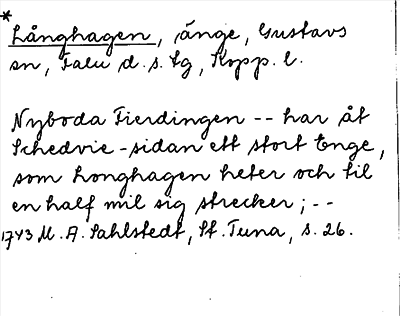 *
Långhagen, änge, Gustavs
sn, Falu d.s. lg, Kopp. l.
Nyboda Fierdingen -- har åt
Schedvie-sidan ett stort Enge,
som Longhagen heter och til
en half mil sig strecker; --
1743 M. A. Sahlstedt, St. Tuna, s. 26.